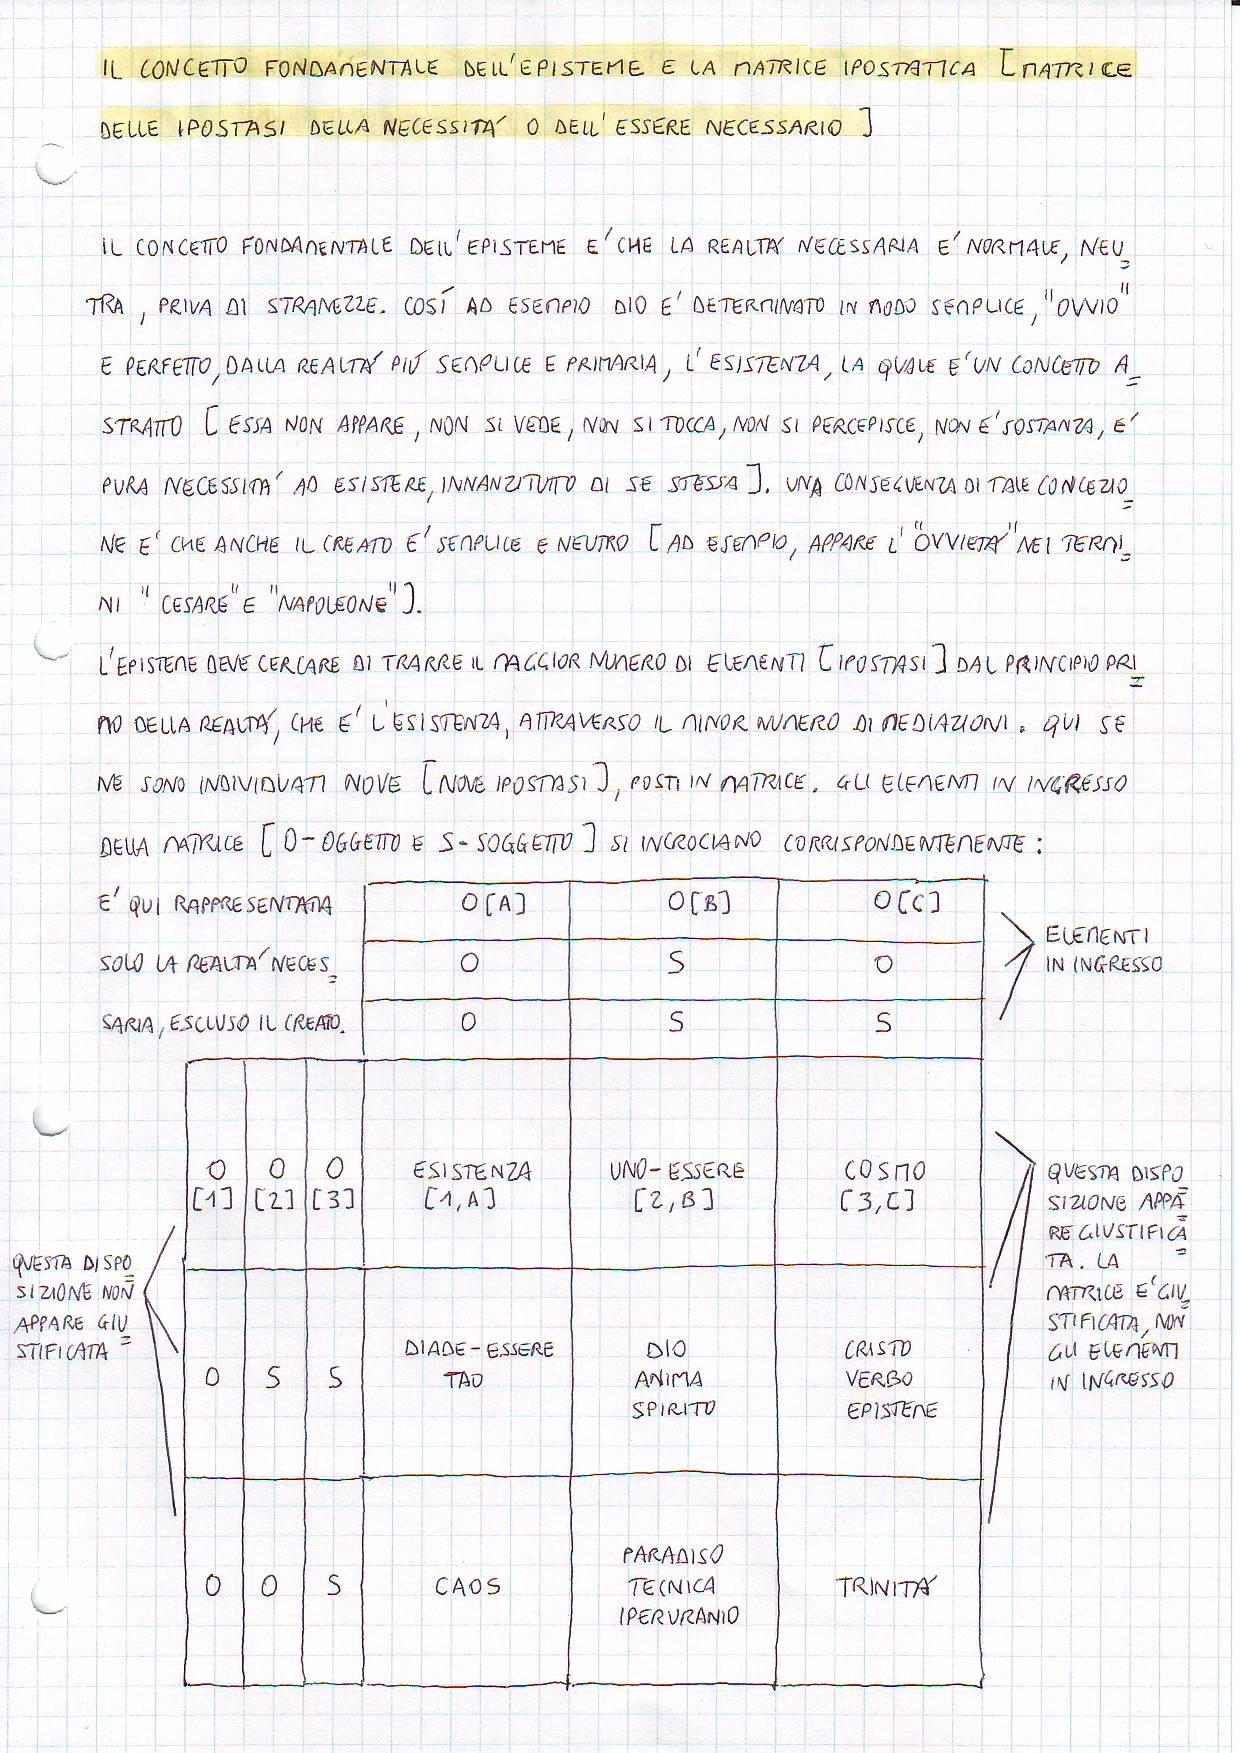 IL CONCETTO FONDAMENTALE DELL'EPISTEME E LA MATRICE IPOSTATICA [MATRICE
DELLE IPOSTASI DELLA NECESSITA' O DELL'ESSERE NECESSARIO]
IL CONCETTO FONDAMENTALE DELL'EPISTEME E' CHE LA REALTA' NECESSARIA E' NORMALE, NEU_
TRA, PRIVA DI STRANEZZE. COSÍ AD ESEMPIO DIO E' DETERMINATO IN MODO SEMPLICE, "OVVIO"
E PERFETTO, DALLA REALTA' PIÚ SEMPLICE E PRIMARIA, L'ESISTENZA, LA QUALE E' UN CONCETTO A_
STRATTO [ESSA NON APPARE, NON SI VEDE, NON SI TOCCA, NON SI PERCEPISCE, NON E' SOSTANZA, E'
PURA NECESSITA' AD ESISTERE, INNANZITUTTO DI SE STESSA]. UNA CONSEGUENZA DI TALE CONCEZIO_
NE E' CHE ANCHE IL CREATO E' SEMPLICE E NEUTRO [AD ESEMPIO, APPARE L'"OVVIETA'" NEI TERMI_
NI "CESARE" E "NAPOLEONE"].
L'EPISTEME DEVE CERCARE DI TRARRE IL MAGGIOR NUMERO DI ELEMENTI [IPOSTASI] DAL PRINCIPIO PRI_
MO DELLA REALTA', CHE E' L'ESISTENZA, ATTRAVERSO IL MINOR NUMERO DI MEDIAZIONI. QUI SE
NE SONO INDIVIDUATI NOVE [NOVE IPOSTASI], POSTI IN MATRICE. GLI ELEMENTI IN INGRESSO
DELLA MATRICE [O-OGGETTO E S-SOGGETTO] SI INCROCIANO CORRISPONDENTEMENTE:
E' QUI RAPPRESENTATA
SOLO LA REALTA' NECES_
SARIA, ESCLUSO IL CREATO.
O[A] O[B] O[C]
O S O
O S S
ELEMENTI
IN INGRESSO
O O O ESISTENZA UNO-ESSERE COSMO
[1] [2] [3] [1,A] [2,B] [3,C]
QUESTA DISPO_
SIZIONE NON
APPARE GIU_
STIFICATA
QUESTA DISPO_
SIZIONE APPA_
RE GIUSTIFICA_
TA. LA
MATRICE E' GIU_
STIFICATA, NON
GLI ELEMENTI
IN INGRESSO
O S S
DIADE-ESSERE
TAO
DIO
ANIMA
SPIRITO
CRISTO
VERBO
EPISTEME
O O S
CAOS
PARADISO
TECNICA
IPERURANIO
TRINITA'